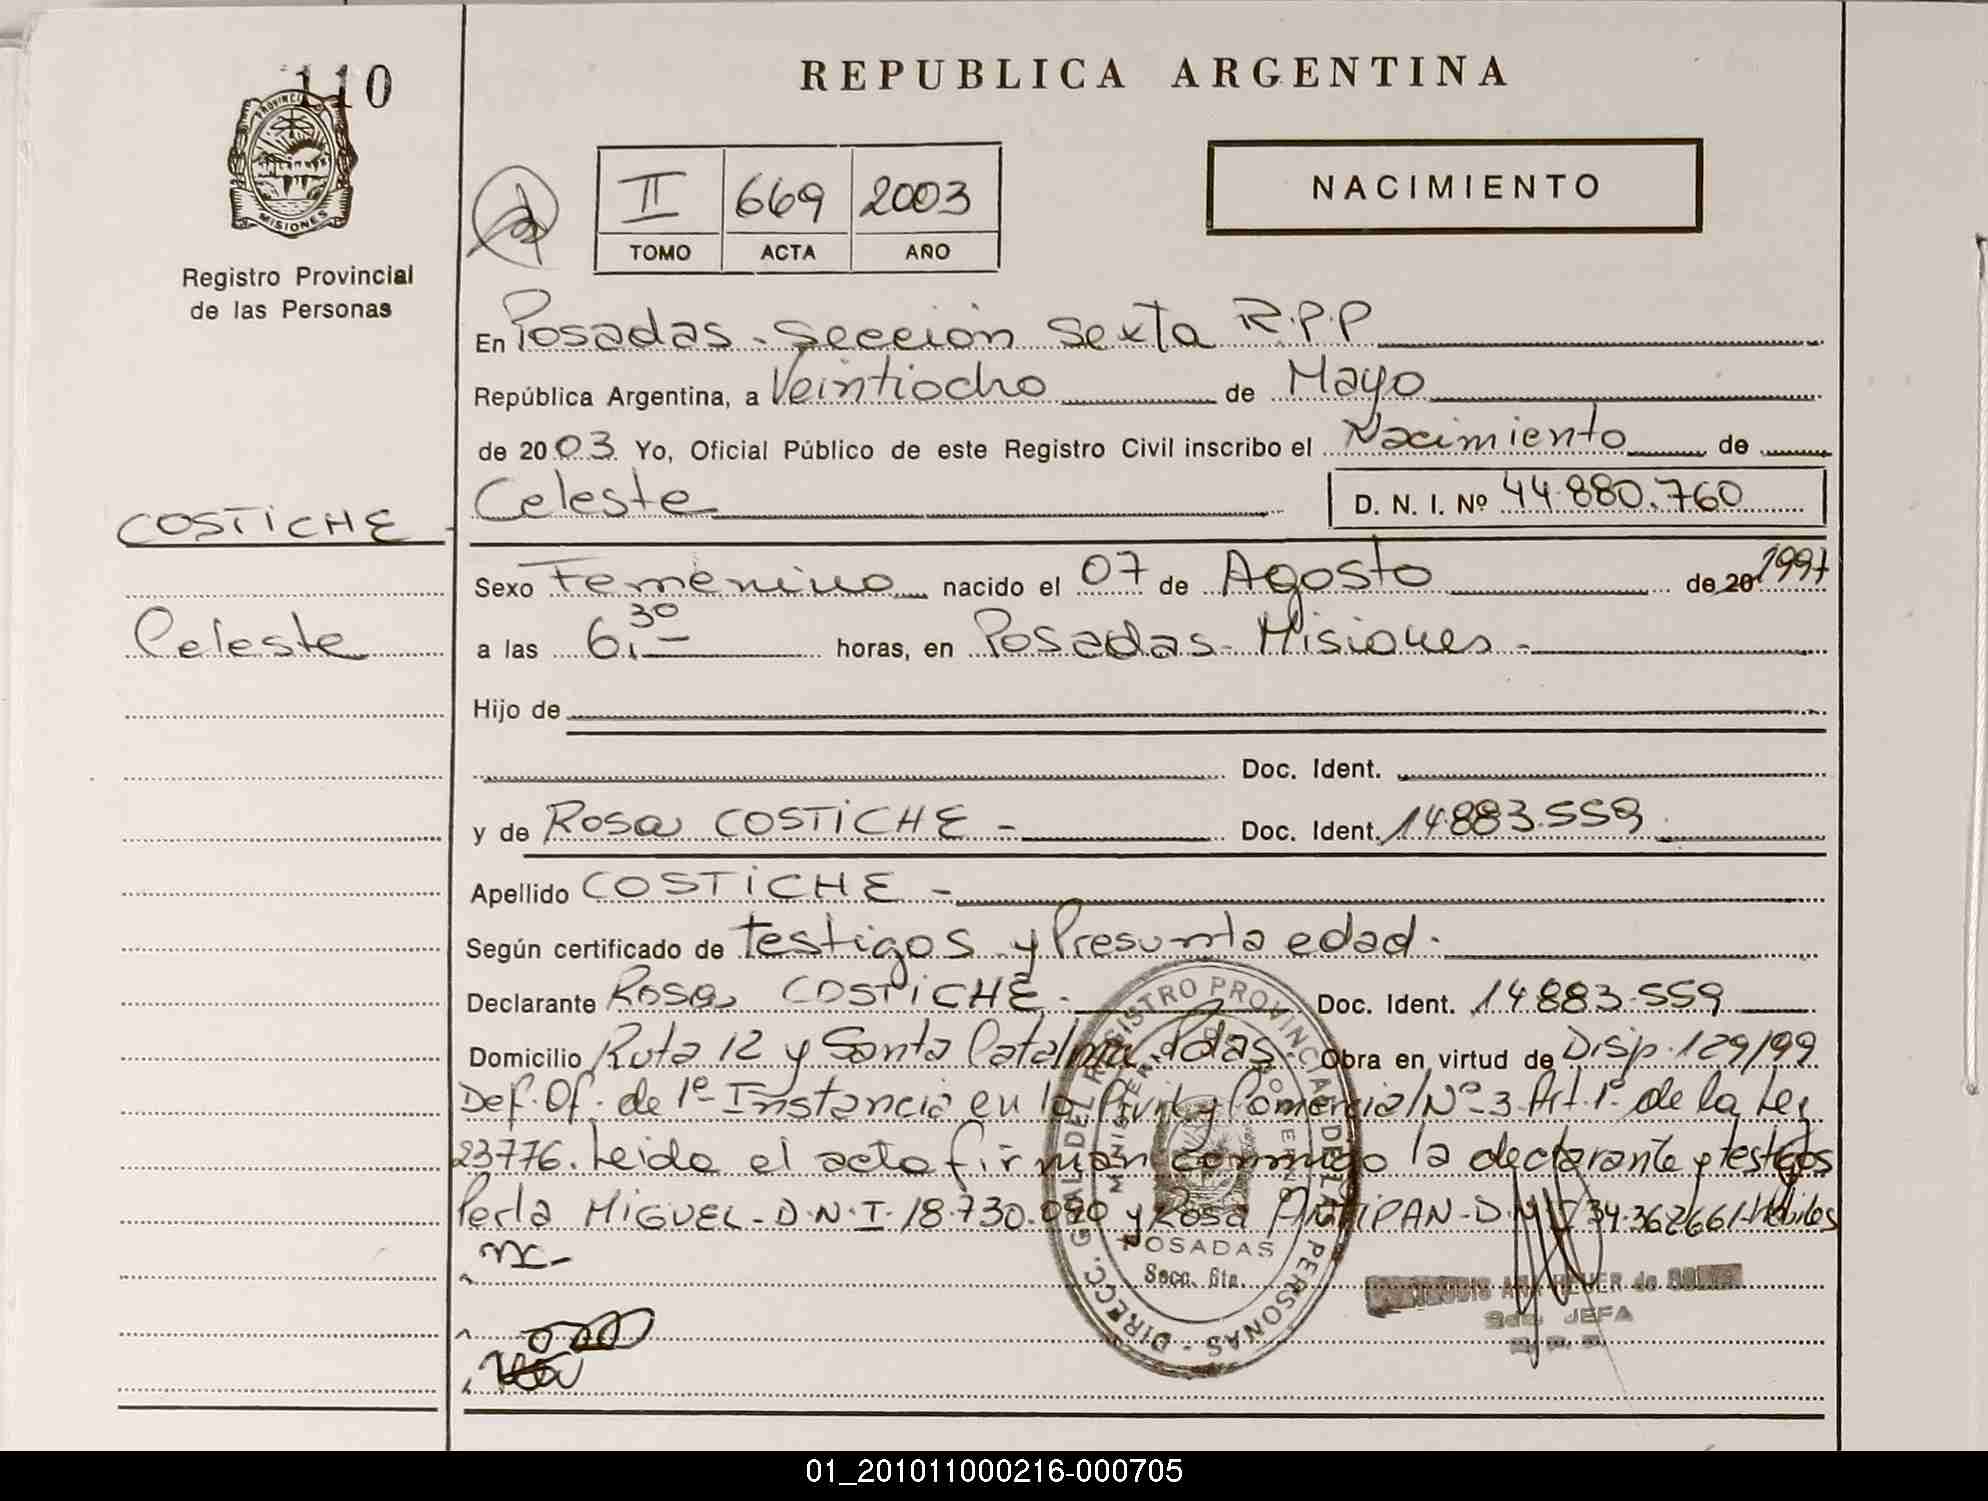 110
PROVINCIA
MISIONES
Registro Provincial
de las Personas
COSTICHE
Celeste
REPUBLICA ARGENTINA
II 669 2003
TOMO ACTA AÑO
NACIMIENTO
En Posadas - Sección Sexta R.P.P
República Argentina, a Veintiocho de Mayo
de 2003. Yo, Oficial Público de este Registro Civil inscribo el Nacimiento de
Celeste D. N. I. Nº 44.880.760
Sexo Femenino nacido el 07 de Agosto de 20 1997
a las 6,30 horas, en Posadas - Misiones -
Hijo de
Doc. Ident.
y de Rosa COSTICHE - Doc. Ident. 14.883.559
Apellido COSTICHE -
Según certificado de testigos y Presunta edad.
Declarante Rosa COSTICHE - Doc. Ident. 14.883.559
Domicilio Ruta 12 y Santa Catalina, Pdas. Obra en virtud de Disp. 129/99
Def. Of. de 1º Instancia en lo Civil y Comercial Nº 3 Art. 1º de la Ley
23776. Leida el acta firman conmigo la declarante y testigos
Perla MIGUEL - D.N.I. 18.730.090 y Rosa D.N.I 34.362661-Hábiles
DIRECC. GRAL DEL REGISTRO PROVINCIAL DE LAS PERSONAS
POSADAS
Secc. 6ta.
Sdo. JEFA
01_201011000216-000705